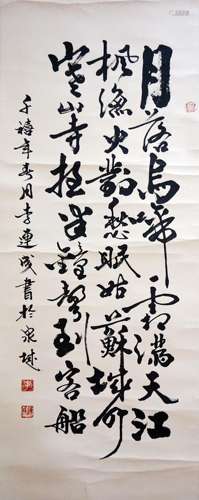 月落烏啼霜滿天江
楓漁火對愁眠姑蘇城外
寒山寺夜半鐘聲到客船
千禧年春月李連成書於泉城